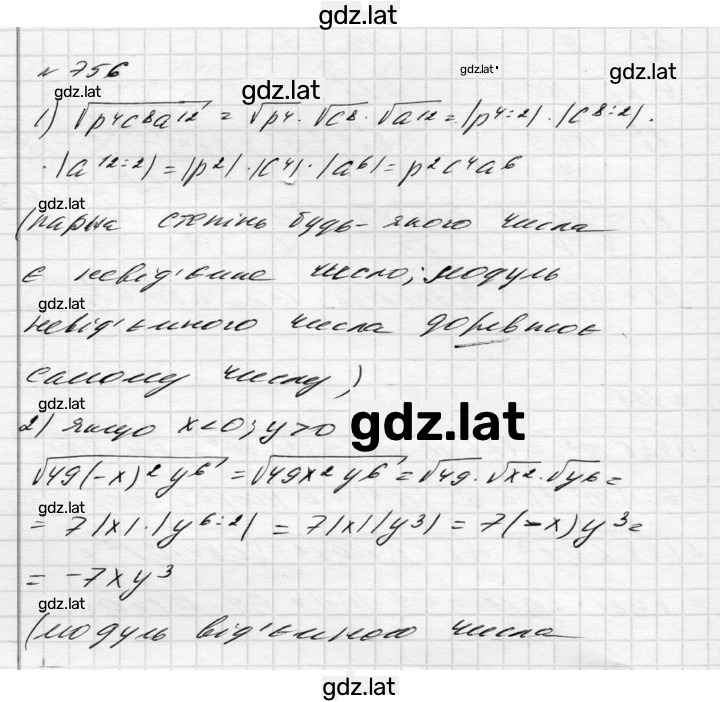 gdz.lat
№ 756
gdz.lat gdz.lat gdz.lat gdz.lat
1) √p⁴c⁸a¹² = √p⁴ · √c⁸ · √a¹² = |p^4:2| · |c^8:2| ·
· |a^12:2| = |p²| · |c⁴| · |a⁶| = p²c⁴a⁶
gdz.lat
(парна степінь будь-якого числа
є невід'ємне число; модуль
gdz.lat
невід'ємного числа дорівнює
самому числу)
gdz.lat gdz.lat
2) якщо x<0; y>0
√49(-x)²y⁶ = √49x²y⁶ = √49 · √x² · √y⁶ =
gdz.lat
= 7|x| · |y^6:2| = 7|x||y³| = 7(-x)y³ =
= -7xy³
gdz.lat
(модуль від'ємного числа
gdz.lat